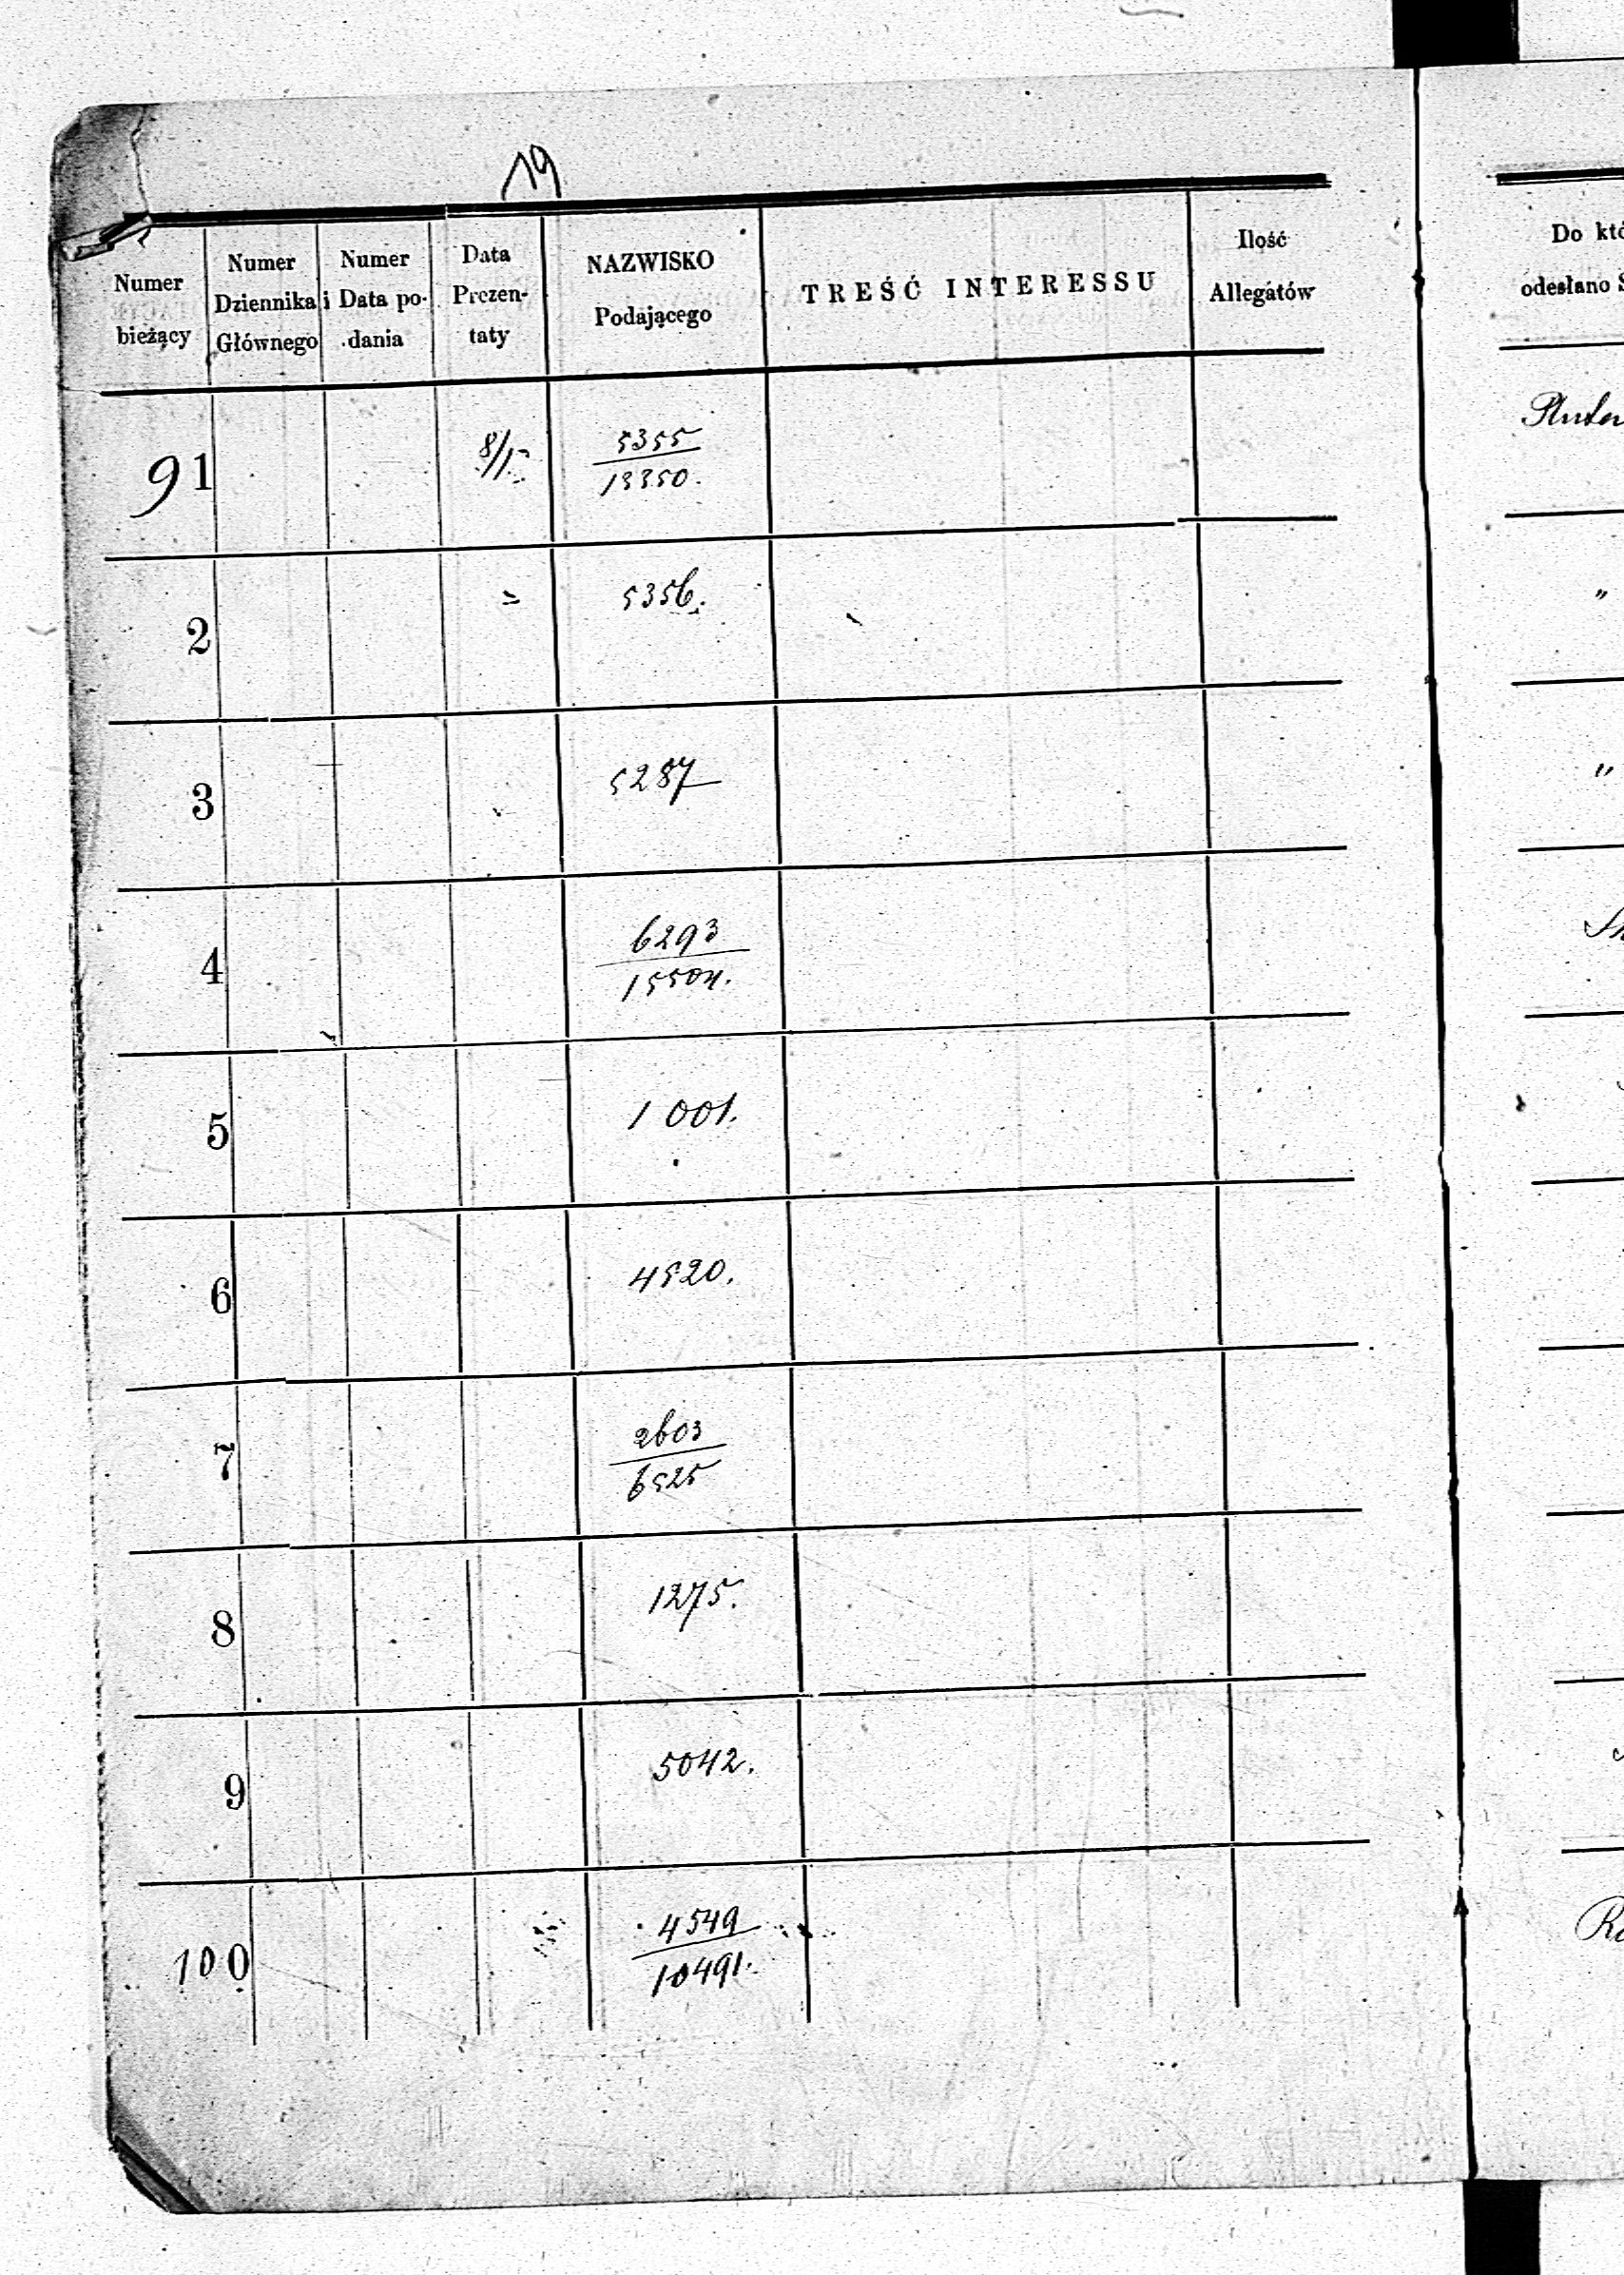 19
Numer
bieżący
Numer
Dziennika
Głównego
Numer
i Data po-
dania
Data
Prezen-
taty
NAZWISKO
Podającego
TREŚĆ INTERESSU
Ilość
Allegatów
Do któ
odesłano S
91
8/5
5355
13350.
2
5356.
"
3
5287
"
4
6293
15504.
5
1001.
6
4520.
7
2603
6525
8
1275.
9
5042.
100
4549
10491.